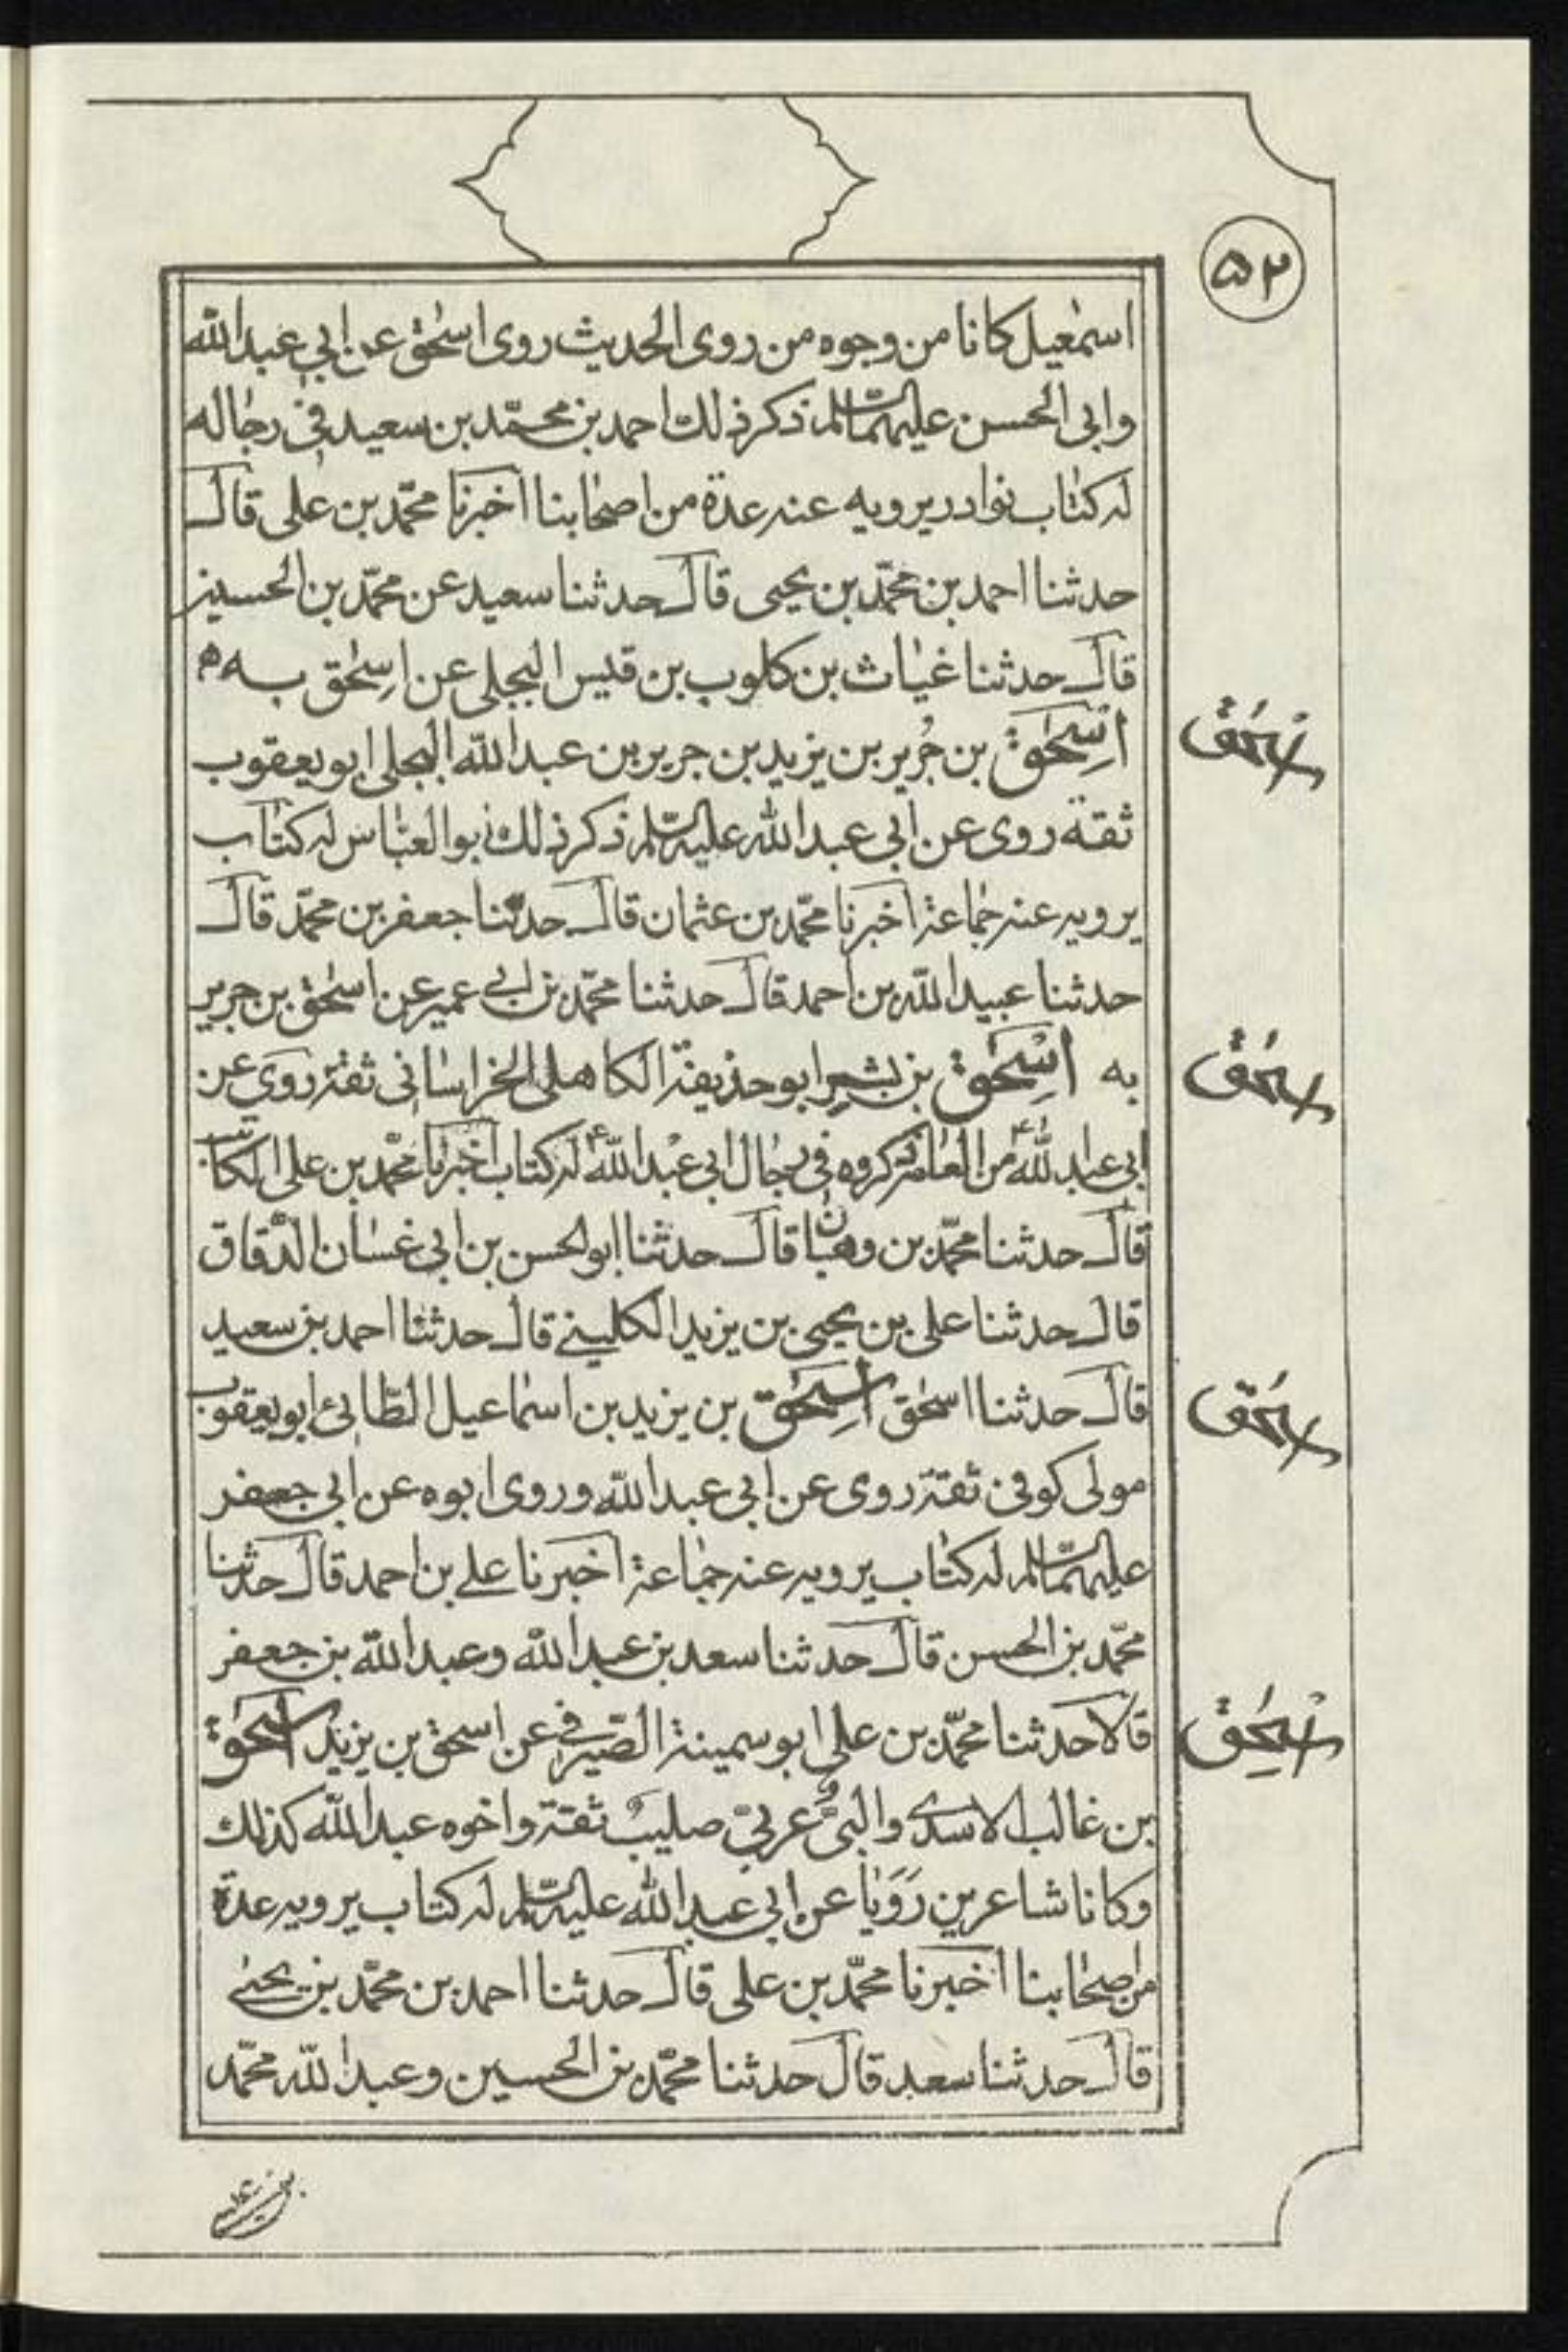 ٥٢
اسمٰعيل كانا من وجوه من روى الحديث روى اسحٰق عن ابي عبدالله
وابى الحسن عليهما السلام ذكر ذلك احمد بن محمّد بن سعيد في رجاله
له كتاب نوادر يرويه عنه عدة من اصحابنا اخبرنا محمّد بن على قال
حدثنا احمد بن محمّد بن يحيى قال حدثنا سعيد عن محمّد بن الحسين
قال حدثنا غياث بن كلوب بن قيس البجلى عن اسحٰق به
اسحٰق بن جُرير بن يزيد بن جرير بن عبدالله البجلى ابو يعقوب
ثقة روى عن ابى عبدالله عليه السلام ذكر ذلك ابو العباس له كتاب
يرويه عنه جماعة اخبرنا محمّد بن عثمان قال حدثنا جعفر بن محمّد قال
حدثنا عبيدالله بن احمد قال حدثنا محمّد بن ابي عمير عن اسحٰق بن جرير
به اسحٰق بن بشير ابو حذيفة الكاهلى الخراسانى ثقة روى عن
ابى عبدالله ع من العامة ذكروه فى رجال ابى عبدالله ع له كتاب اخبرنا محمّد بن على الكاتب
قال حدثنا محمّد بن وهبان قال حدثنا ابوالحسن بن ابى غسان الدقاق
قال حدثنا على بن يحيى بن يزيد الكليني قال حدثنا احمد بن سعيد
قال حدثنا اسحٰق اسحٰق بن يزيد بن اسماعيل الطائى ابو يعقوب
مولى كوفى ثقة روى عن ابى عبدالله وروى ابوه عن ابى جعفر
عليهما السلام له كتاب يرويه عنه جماعة اخبرنا علي بن احمد قال حدثنا
محمّد بن الحسن قال حدثنا سعد بن عبدالله وعبدالله بن جعفر
قالا حدثنا محمّد بن على ابو سمينة الصيرفي عن اسحق بن يزيد اسحٰق
بن غالب الاسدى والبىّ عربىّ صليبٌ ثقة واخوه عبدالله كذلك
وكانا شاعرين رَوَيا عن ابى عبدالله عليه السلام له كتاب يرويه عدة
من اصحابنا اخبرنا محمّد بن على قال حدثنا احمد بن محمّد بن يحيى
قال حدثنا سعد قال حدثنا محمّد بن الحسين وعبدالله محمّد
اسحٰق
اسحٰق
اسحٰق
اسحٰق